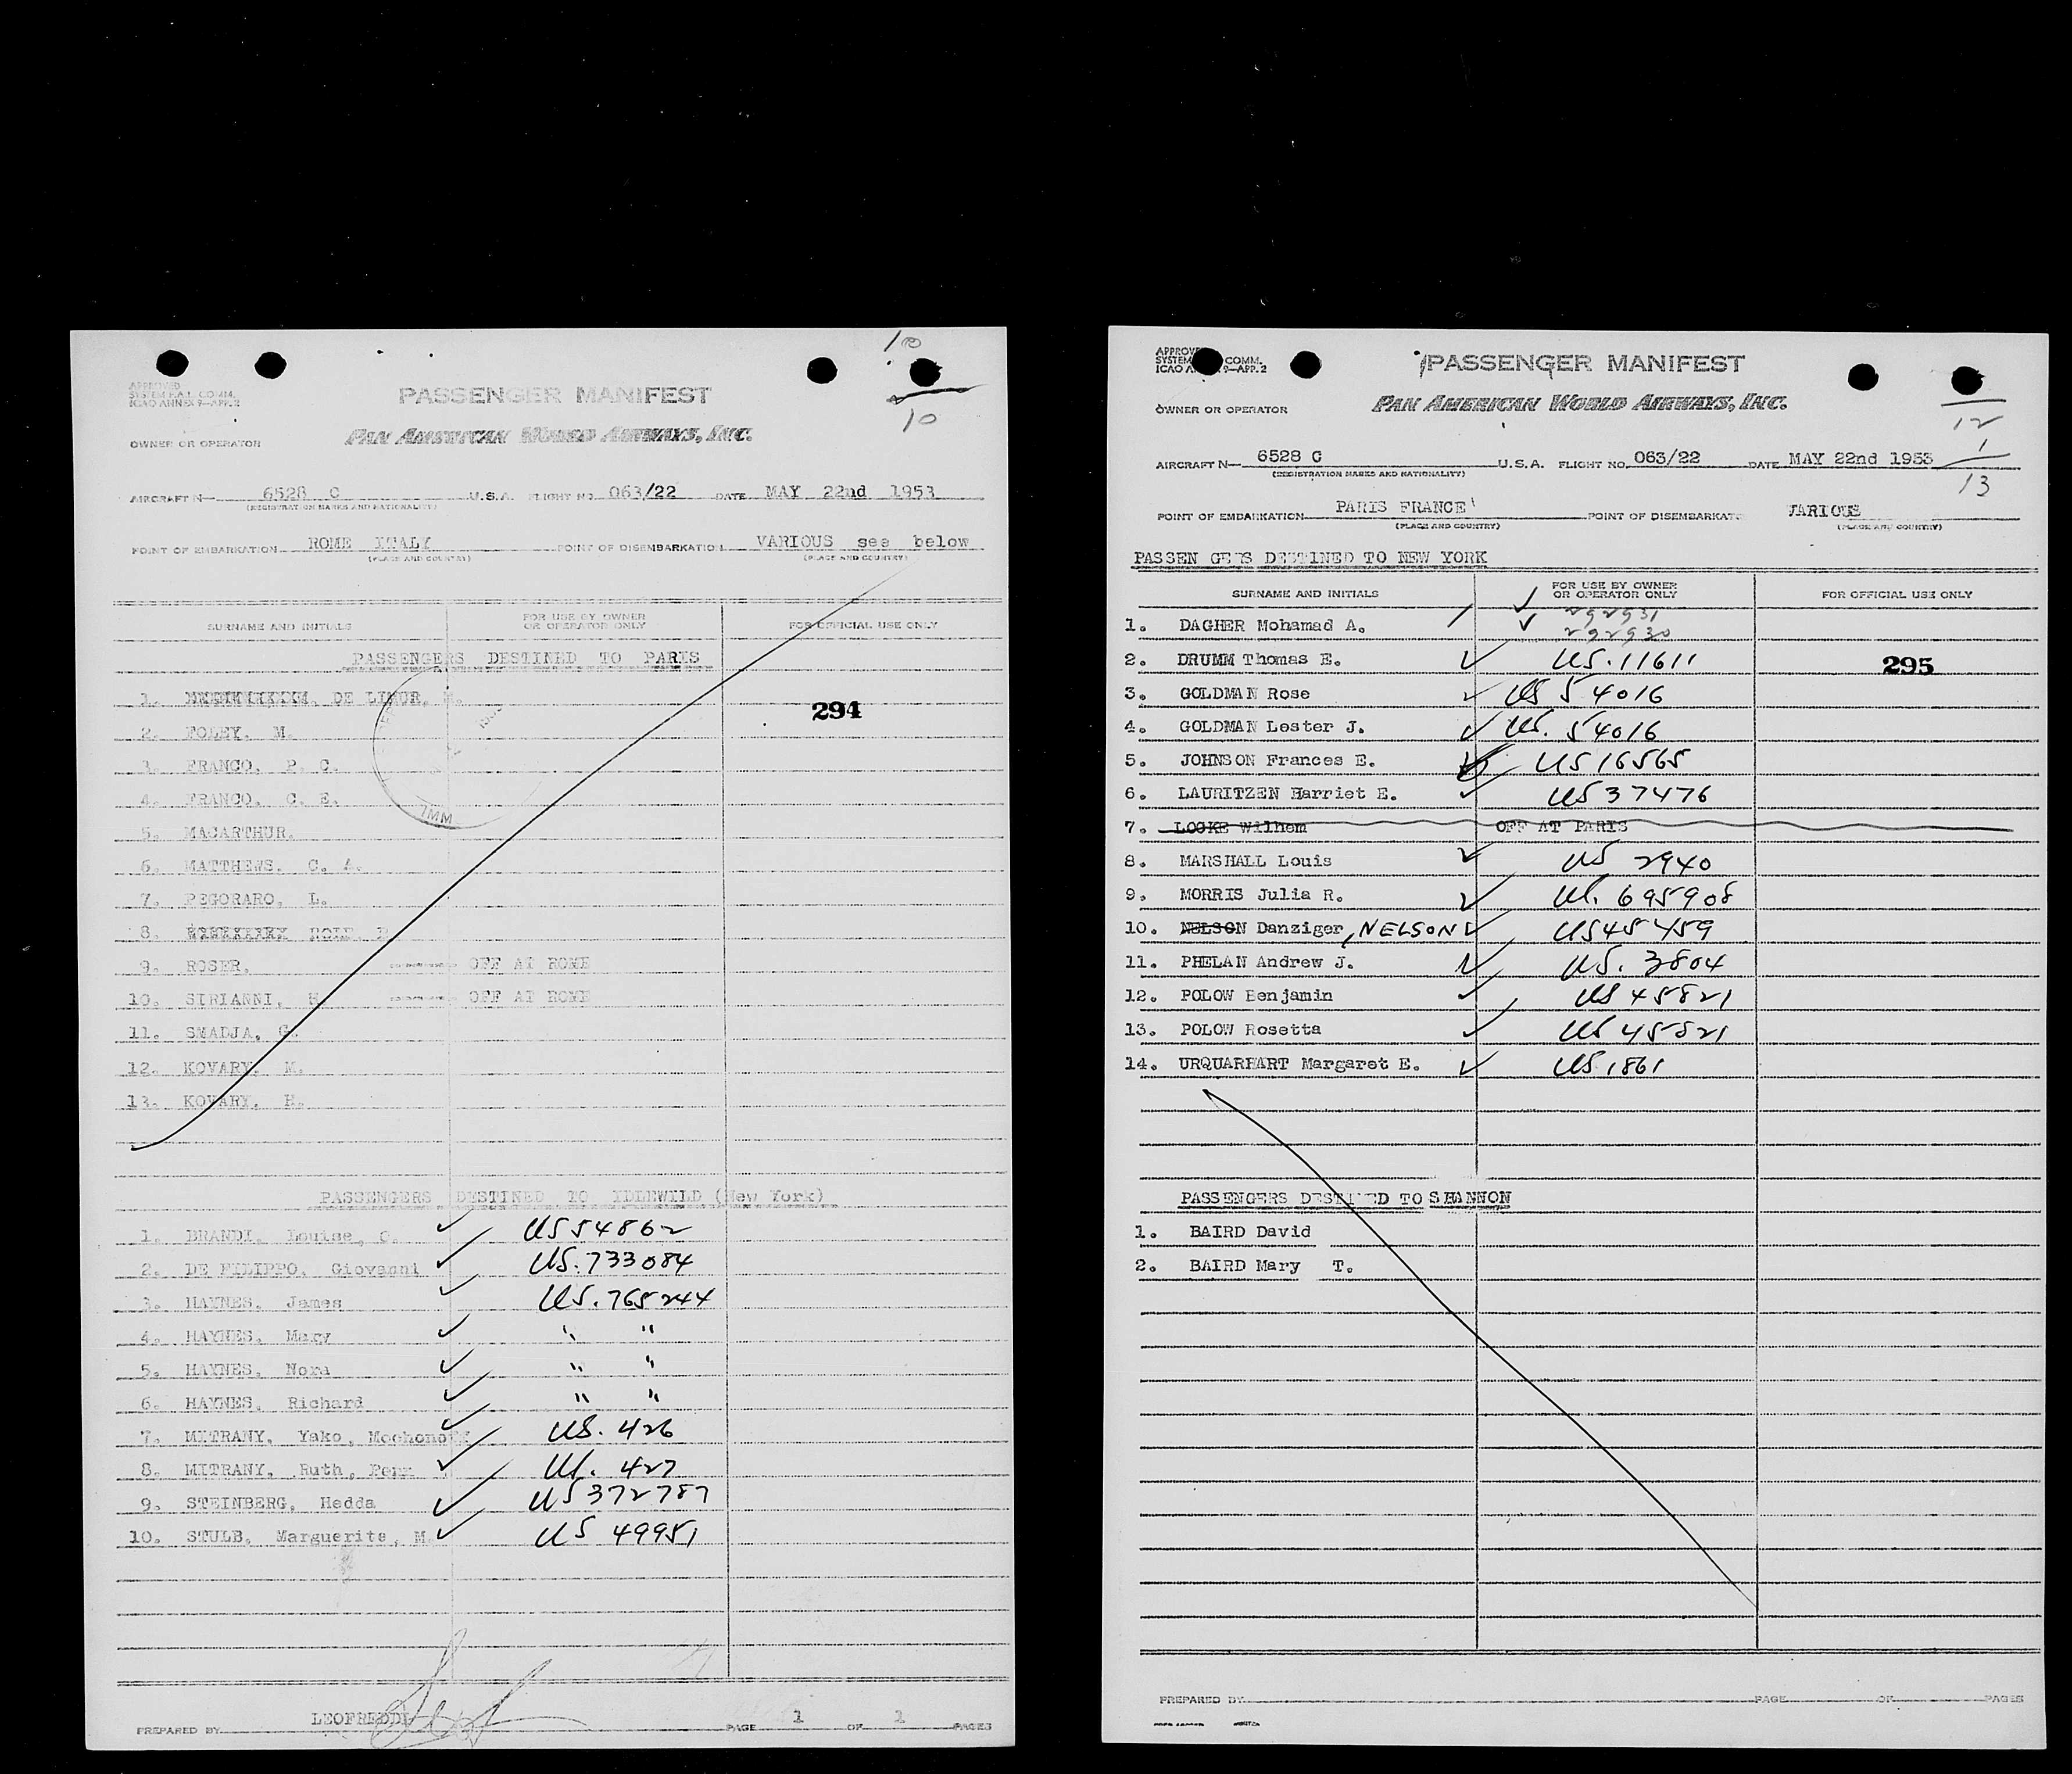 10
10
APPROVED
SYSTEM F.A.L. COMM.
ICAO ANNEX 9—APP. 2
PASSENGER MANIFEST
OWNER OR OPERATOR PAN AMERICAN WORLD AIRWAYS, INC.
AIRCRAFT N— 6528 C U.S.A. FLIGHT NO. 063/22 DATE MAY 22nd 1953
(REGISTRATION MARKS AND NATIONALITY)
POINT OF EMBARKATION ROME ITALY POINT OF DISEMBARKATION VARIOUS see below
(PLACE AND COUNTRY) (PLACE AND COUNTRY)
SURNAME AND INITIALS FOR USE BY OWNER OR OPERATOR ONLY FOR OFFICIAL USE ONLY
PASSENGERS DESTINED TO PARIS
1. DE LIMUR,
294
2. FOLEY, M.
3. FRANCO, P. C.
4. FRANCO, C. E.
IMM
5. MACARTHUR.
6. MATTHEWS. C. A.
7. PEGORARO, L.
8.
9. ROSER, OFF AT ROME
10. SIRIANNI, OFF AT ROME
11. SMADJA, G.
12. KOVARY, M.
13. KOVARY, H.
PASSENGERS DESTINED TO IDLEWILD (New York)
1. BRANDI, Louise, C. US 54862
2. DE FILIPPO, Giovanni US. 733084
3. HAYNES, James US. 765244
4. HAYNES, Mary " "
5. HAYNES, Nora " "
6. HAYNES, Richard " "
7. MITRANY, Yako, US. 426
8. MITRANY, Ruth, US. 427
9. STEINBERG, Hedda US 372787
10. STULB, Marguerite, M. US 49951
PREPARED BY LEOFREDDI PAGE 1 OF 1 PAGES
APPROVED
SYSTEM COMM.
ICAO ANNEX 9—APP. 2
PASSENGER MANIFEST
OWNER OR OPERATOR PAN AMERICAN WORLD AIRWAYS, INC.
12
1
13
AIRCRAFT N— 6528 C U.S.A. FLIGHT NO. 063/22 DATE MAY 22nd 1953
(REGISTRATION MARKS AND NATIONALITY)
POINT OF EMBARKATION PARIS FRANCE POINT OF DISEMBARKAT VARIOUS
(PLACE AND COUNTRY) (PLACE AND COUNTRY)
PASSEN GERS DESTINED TO NEW YORK
SURNAME AND INITIALS FOR USE BY OWNER OR OPERATOR ONLY FOR OFFICIAL USE ONLY
292931
1. DAGHER Mohamad A. 292930
2. DRUMM Thomas E. US. 11611
295
3. GOLDMAN Rose US 54016
4. GOLDMAN Lester J. US. 54016
5. JOHNSON Frances E. US 16565
6. LAURITZEN Harriet E. US 37476
7. LOOKE Wilhem OFF AT PARIS
8. MARSHALL Louis US 2940
9. MORRIS Julia R. US. 695908
10. NELSON Danziger, NELSON US 45459
11. PHELAN Andrew J. US. 3804
12. POLOW Benjamin US 45821
13. POLOW Rosetta US 45821
14. URQUARHART Margaret E. US 1861
PASSENGERS DESTINED TO SHANNON
1. BAIRD David
2. BAIRD Mary T.
PREPARED BY PAGE OF PAGES